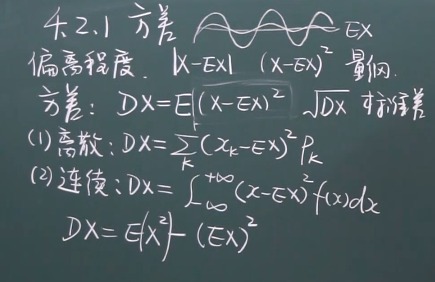 4.2.1 方差 EX
偏离程度. |X-EX| (X-EX)² 量纲.
方差: DX=E(X-EX)² √DX 标准差
(1)离散: DX=∑_k (x_k-EX)² P_k
(2)连续: DX=∫_{-∞}^{+∞} (x-EX)² f(x)dx
DX=E(X²)-(EX)²